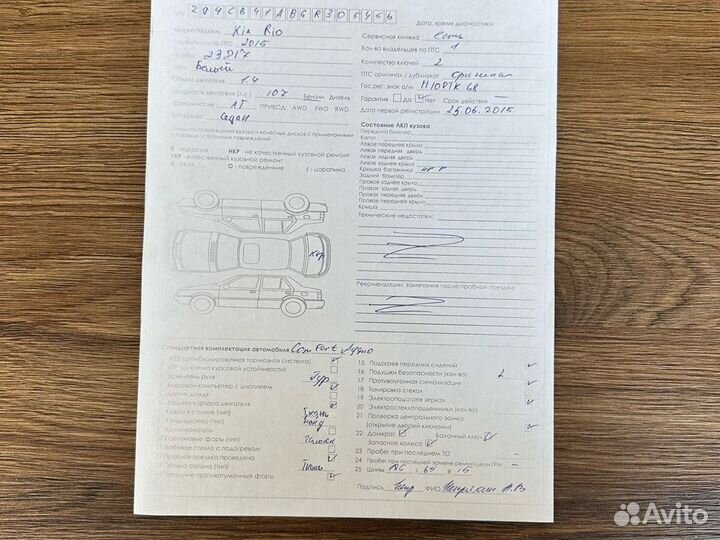 VIN Z94CB41ABGR305456 Дата, время диагностики:
Марка/модель Kia Rio Сервисная книжка есть
Год выпуска по ПТС 2015 Кол-во владельцев по ПТС 1
23817 Количество ключей 2
Цвет Белый ПТС оригинал / дубликат оригинал
Объем двигателя 1.4 Гос. рег. знак а/м
Мощность двигателя (л.с.) 107 Бензин Дизель Гарантия Да Нет Срок действия –
Трансмиссия АТ ПРИВОД: AWD FWD RWD Дата первой регистрации 25.06.2015
Тип кузова Седан
Внешние повреждения кузова и колесных дисков с примечаниями
степени устранения повреждений:
К - коррозия НКР - не качественный кузовной ремонт
ККР - качественный кузовной ремонт
С - скол О - повреждение / - царапина
ккр
Состояние ЛКП кузова
Передний бампер
Капот
Левое переднее крыло
Левая передняя дверь
Левая задняя дверь
Левое заднее крыло
Крышка багажника ккр
Задний бампер
Правое заднее крыло
Правая задняя дверь
Правая передняя дверь
Правое переднее крыло
Крыша
Технические недостатки:
Рекомендации, замечания после пробной поездки:
Стандартная комплектация автомобиля Comfort Аудио
ABS (антиблокировочная тормозная система)
ESP (система курсовой устойчивости)
Усилитель руля Гур
Бортовой компьютер с дисплеем
Картер двигателя
Защита картера двигателя
Ковры в салоне (тип) Ткань
Кондиционер (тип) Конд
Круиз-контроль
Ксеноновые фары (тип) Галоген
Лобовое стекло с подогревом
Пробная поездка проведена
Обивка салона (тип) Ткань
Передние противотуманные фары
15 Подогрев передних сидений
16 Подушки безопасности (кол-во) 2
17 Противоугонная сигнализация
18 Тонировка стекол
19 Электроподогрев зеркал
20 Электростеклоподъемники (кол-во)
21 Проверка центрального замка
(открытие дверей ключами)
22 Домкрат Балонный ключ
Запасное колесо
23 Пробег при последнем ТО –
24 Пробег при последней замене ремня/цепи ГРМ –
25 Шины 185 / 65 R 15
Подпись ФИО А.В
Avito